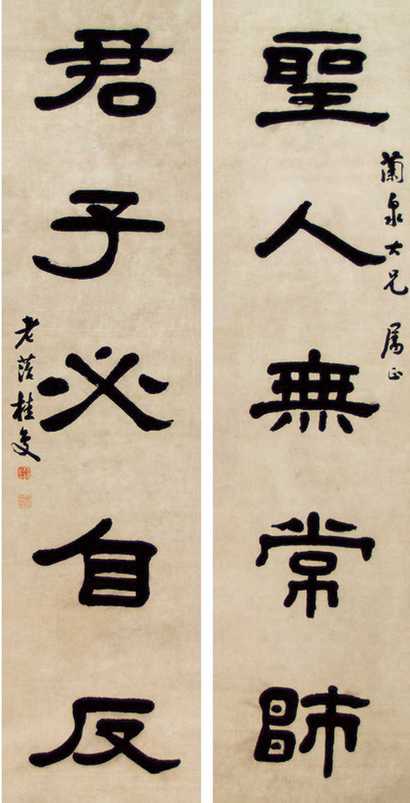 聖人無常師
蘭泉大兄 属正
君子必自反
老苔桂馥